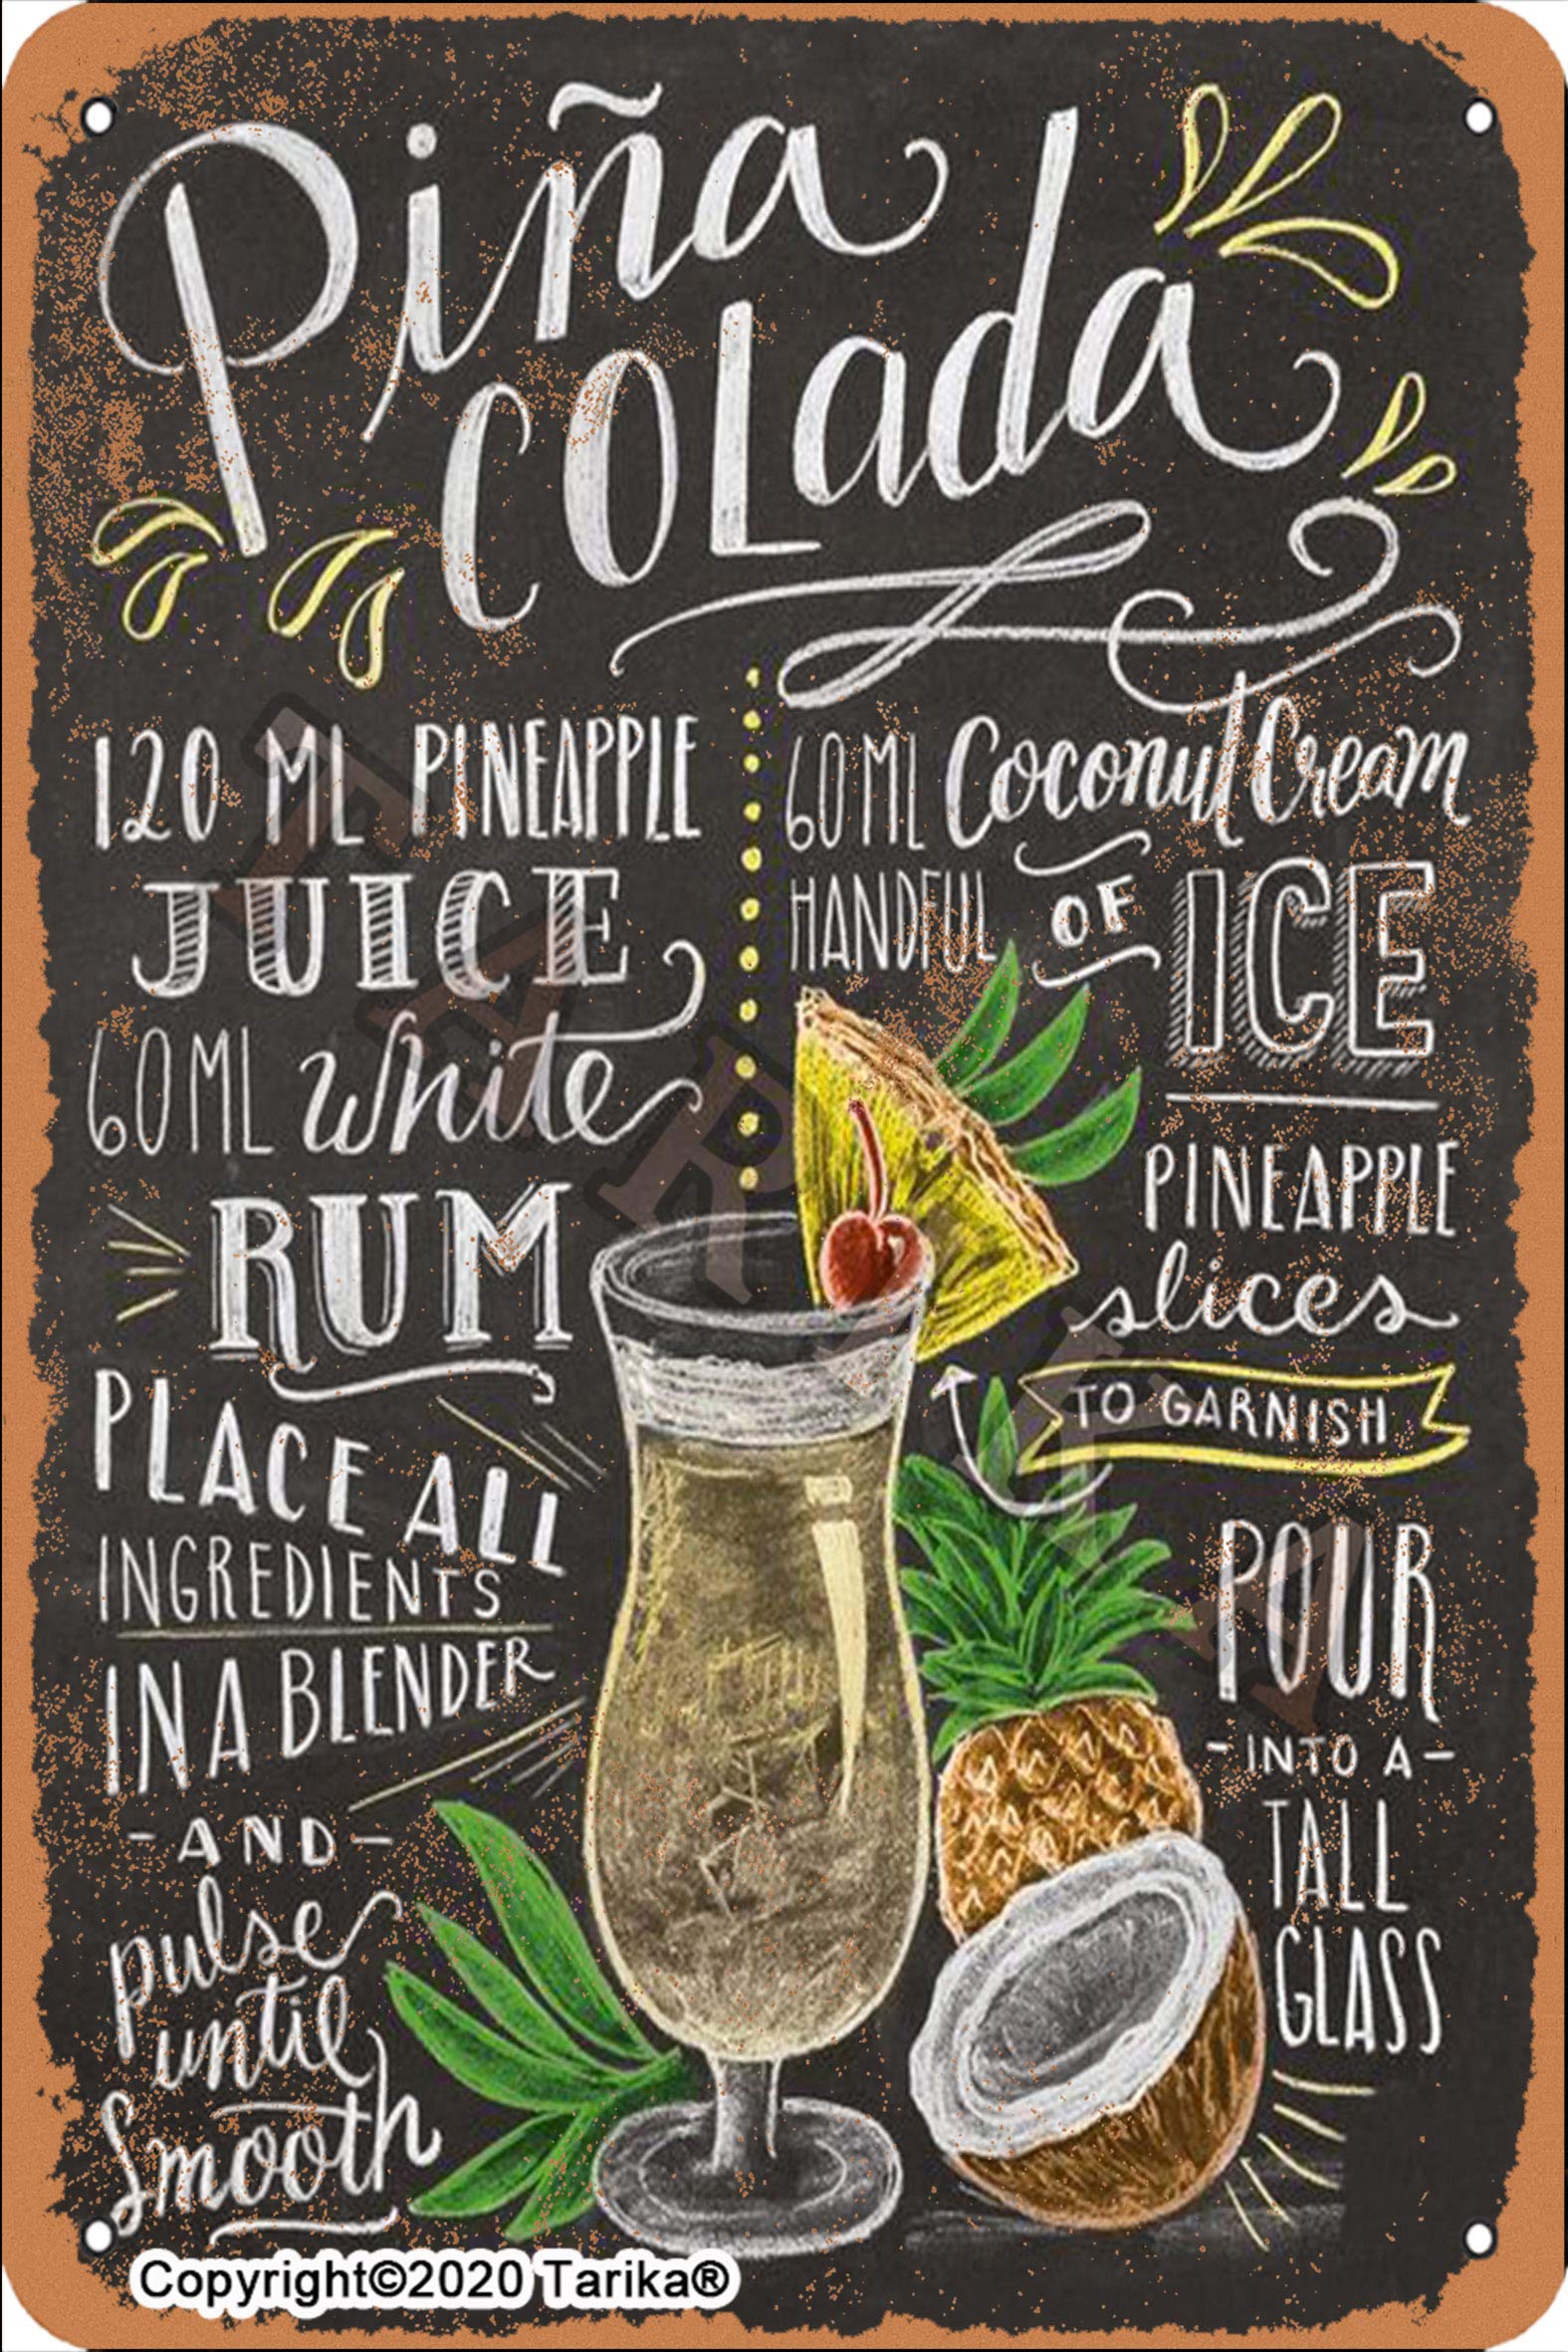 Piña
Colada
120 ML PINEAPPLE
JUICE
60 ML White
RUM
PLACE ALL
INGREDIENTS
IN A BLENDER
-AND-
pulse
until
Smooth
60 ML Coconut Cream
HANDFUL OF ICE
PINEAPPLE
slices
TO GARNISH
POUR
-INTO A-
TALL
GLASS
TARIKA
Copyright©2020 Tarika®